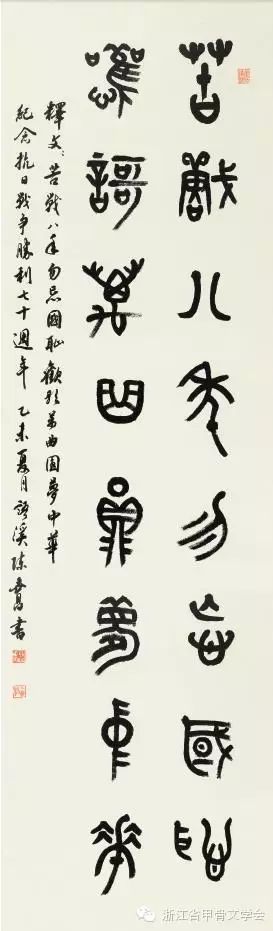 苦戰八年勿忘國恥
歡歌萬曲圓夢中華
釋文：苦戰八年勿忘國恥歡歌萬曲圓夢中華
紀念抗日戰爭勝利七十週年 乙未夏月 語溪陳 書
浙江省甲骨文学会